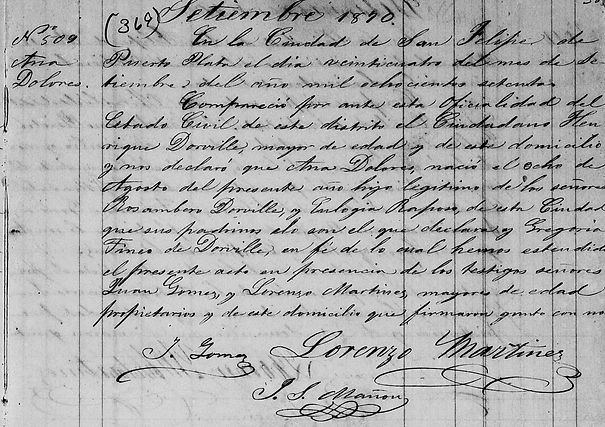 (369) Setiembre 1870.
Nº 509
Ana
Dolores.
En la Ciudad de San Felipe de
Puerto Plata el dia veinticuatro del mes de Se-
tiembre del año mil ochocientos setenta.
Compareció por ante esta Oficialidad del
Estado Civil de este distrito el Ciudadano Hen-
rique Dorville, mayor de edad y de este domicilio
y nos declaró que Ana Dolores, nació el ocho de
Agosto del presente año hija legitima de los señores
Rosamboro Dorville, y Eulogia Raposo, de esta Ciudad
que sus padrinos lo son el que declara y Gregoria
de Dorville, en fé de lo cual hemos estendido
el presente acto en presencia de los testigos señores
Juan Gomez, y Lorenzo Martinez, mayores de edad
propietarios y de este domicilio que firmaron junto con no
J. Gomez Lorenzo Martinez